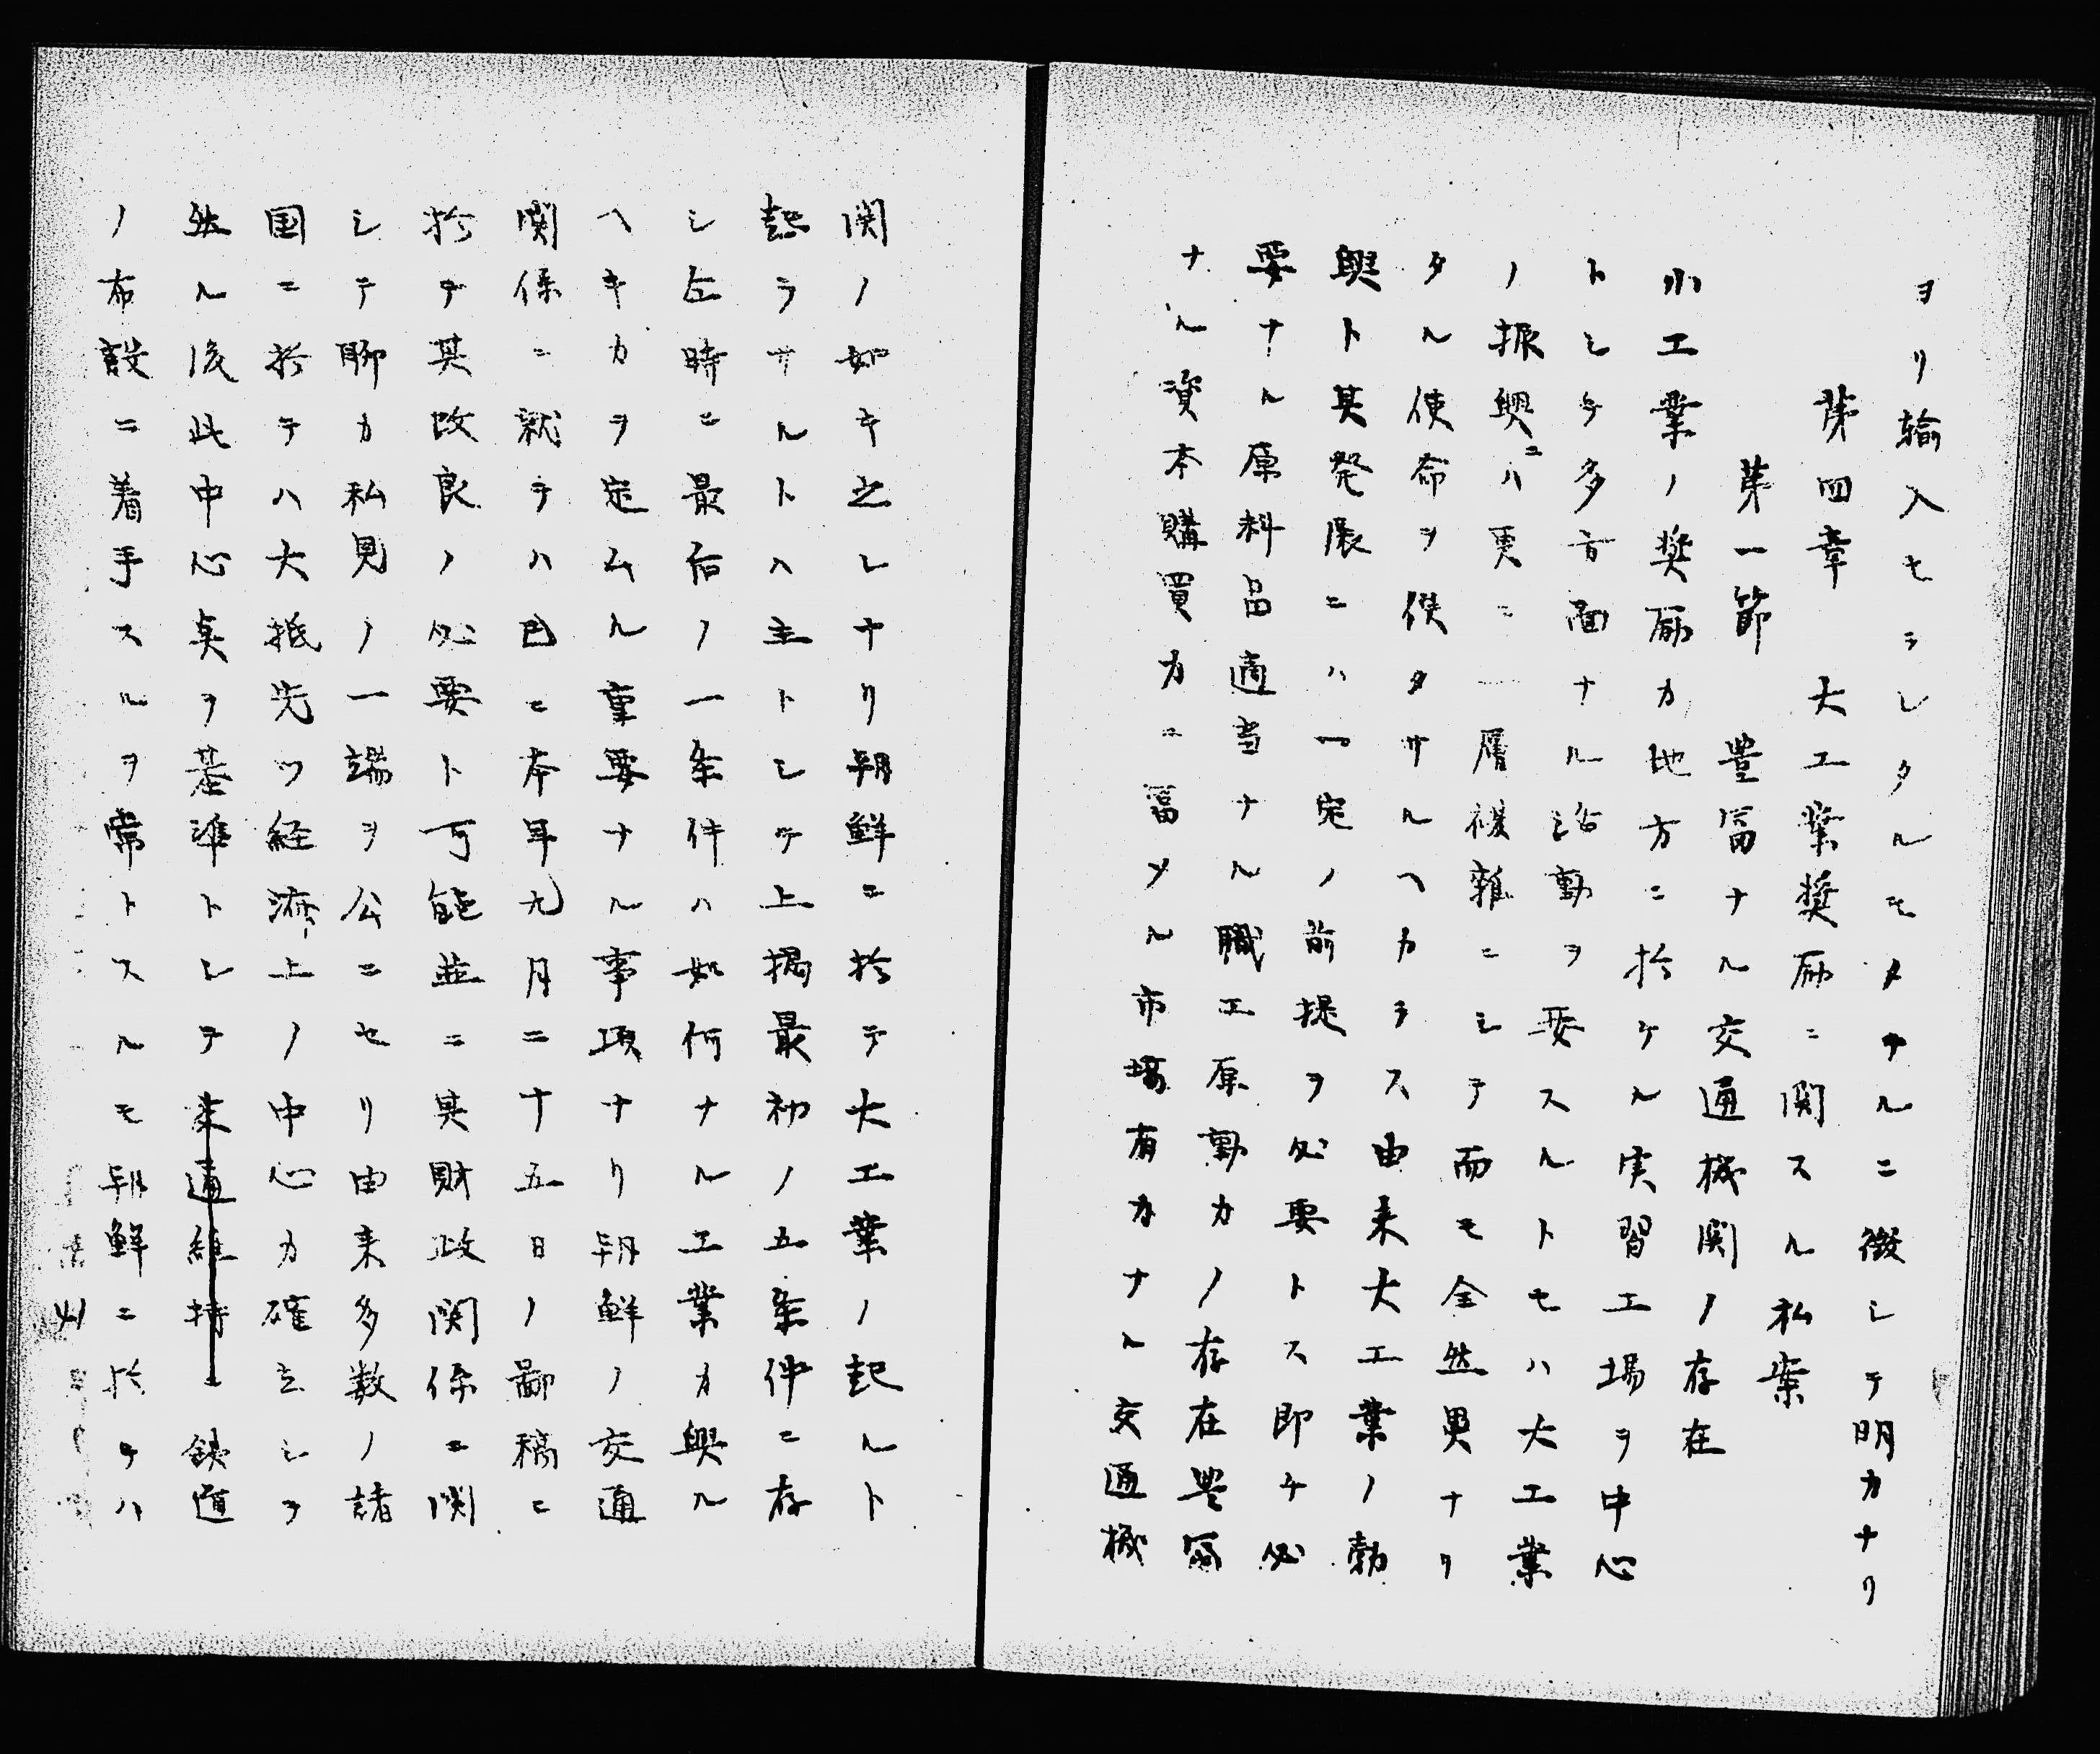 ヨリ輸入セラレタルモノタルニ徴シテ明カナリ
第四章　大工業奨励ニ関スル私案
第一節　豊富ナル交通機関ノ存在
小工業ノ奨励カ地方ニ於ケル実習工場ヲ中心
トシテ多方面ナル活動ヲ要スルトモハ大工業
ノ振興ニハ更ニ一層複雑ニシテ而モ全然異ナリ
タル使命ヲ俟タサルヘカラス由来大工業ノ勃
興ト其発展ニハ一定ノ前提ヲ必要トス即チ必
要ナル原料品適当ナル職工原動力ノ存在豊富
ナル資本購買力ニ富メル市場有力ナル交通機
関ノ如キ之レナリ朝鮮ニ於テ大工業ノ起ルト
起ラサルトハ主トシテ上掲最初ノ五条件ニ存
シ左時ニ最后ノ一条件ハ如何ナル工業カ興ル
ヘキカヲ定ムル重要ナル事項ナリ朝鮮ノ交通
関係ニ就テハ已ニ本年九月二十五日ノ鄙稿ニ
於テ其改良ノ必要ト可能並ニ其財政関係ニ関
シテ聊カ私見ノ一端ヲ公ニセリ由来多数ノ諸
国ニ於テハ大抵先ツ経済上ノ中心カ確立シヲ
然ル後此中心点ヲ基準トシテ来通維持ニ鉄道
ノ布設ニ着手スルヲ常トスルモ朝鮮ニ於テハ